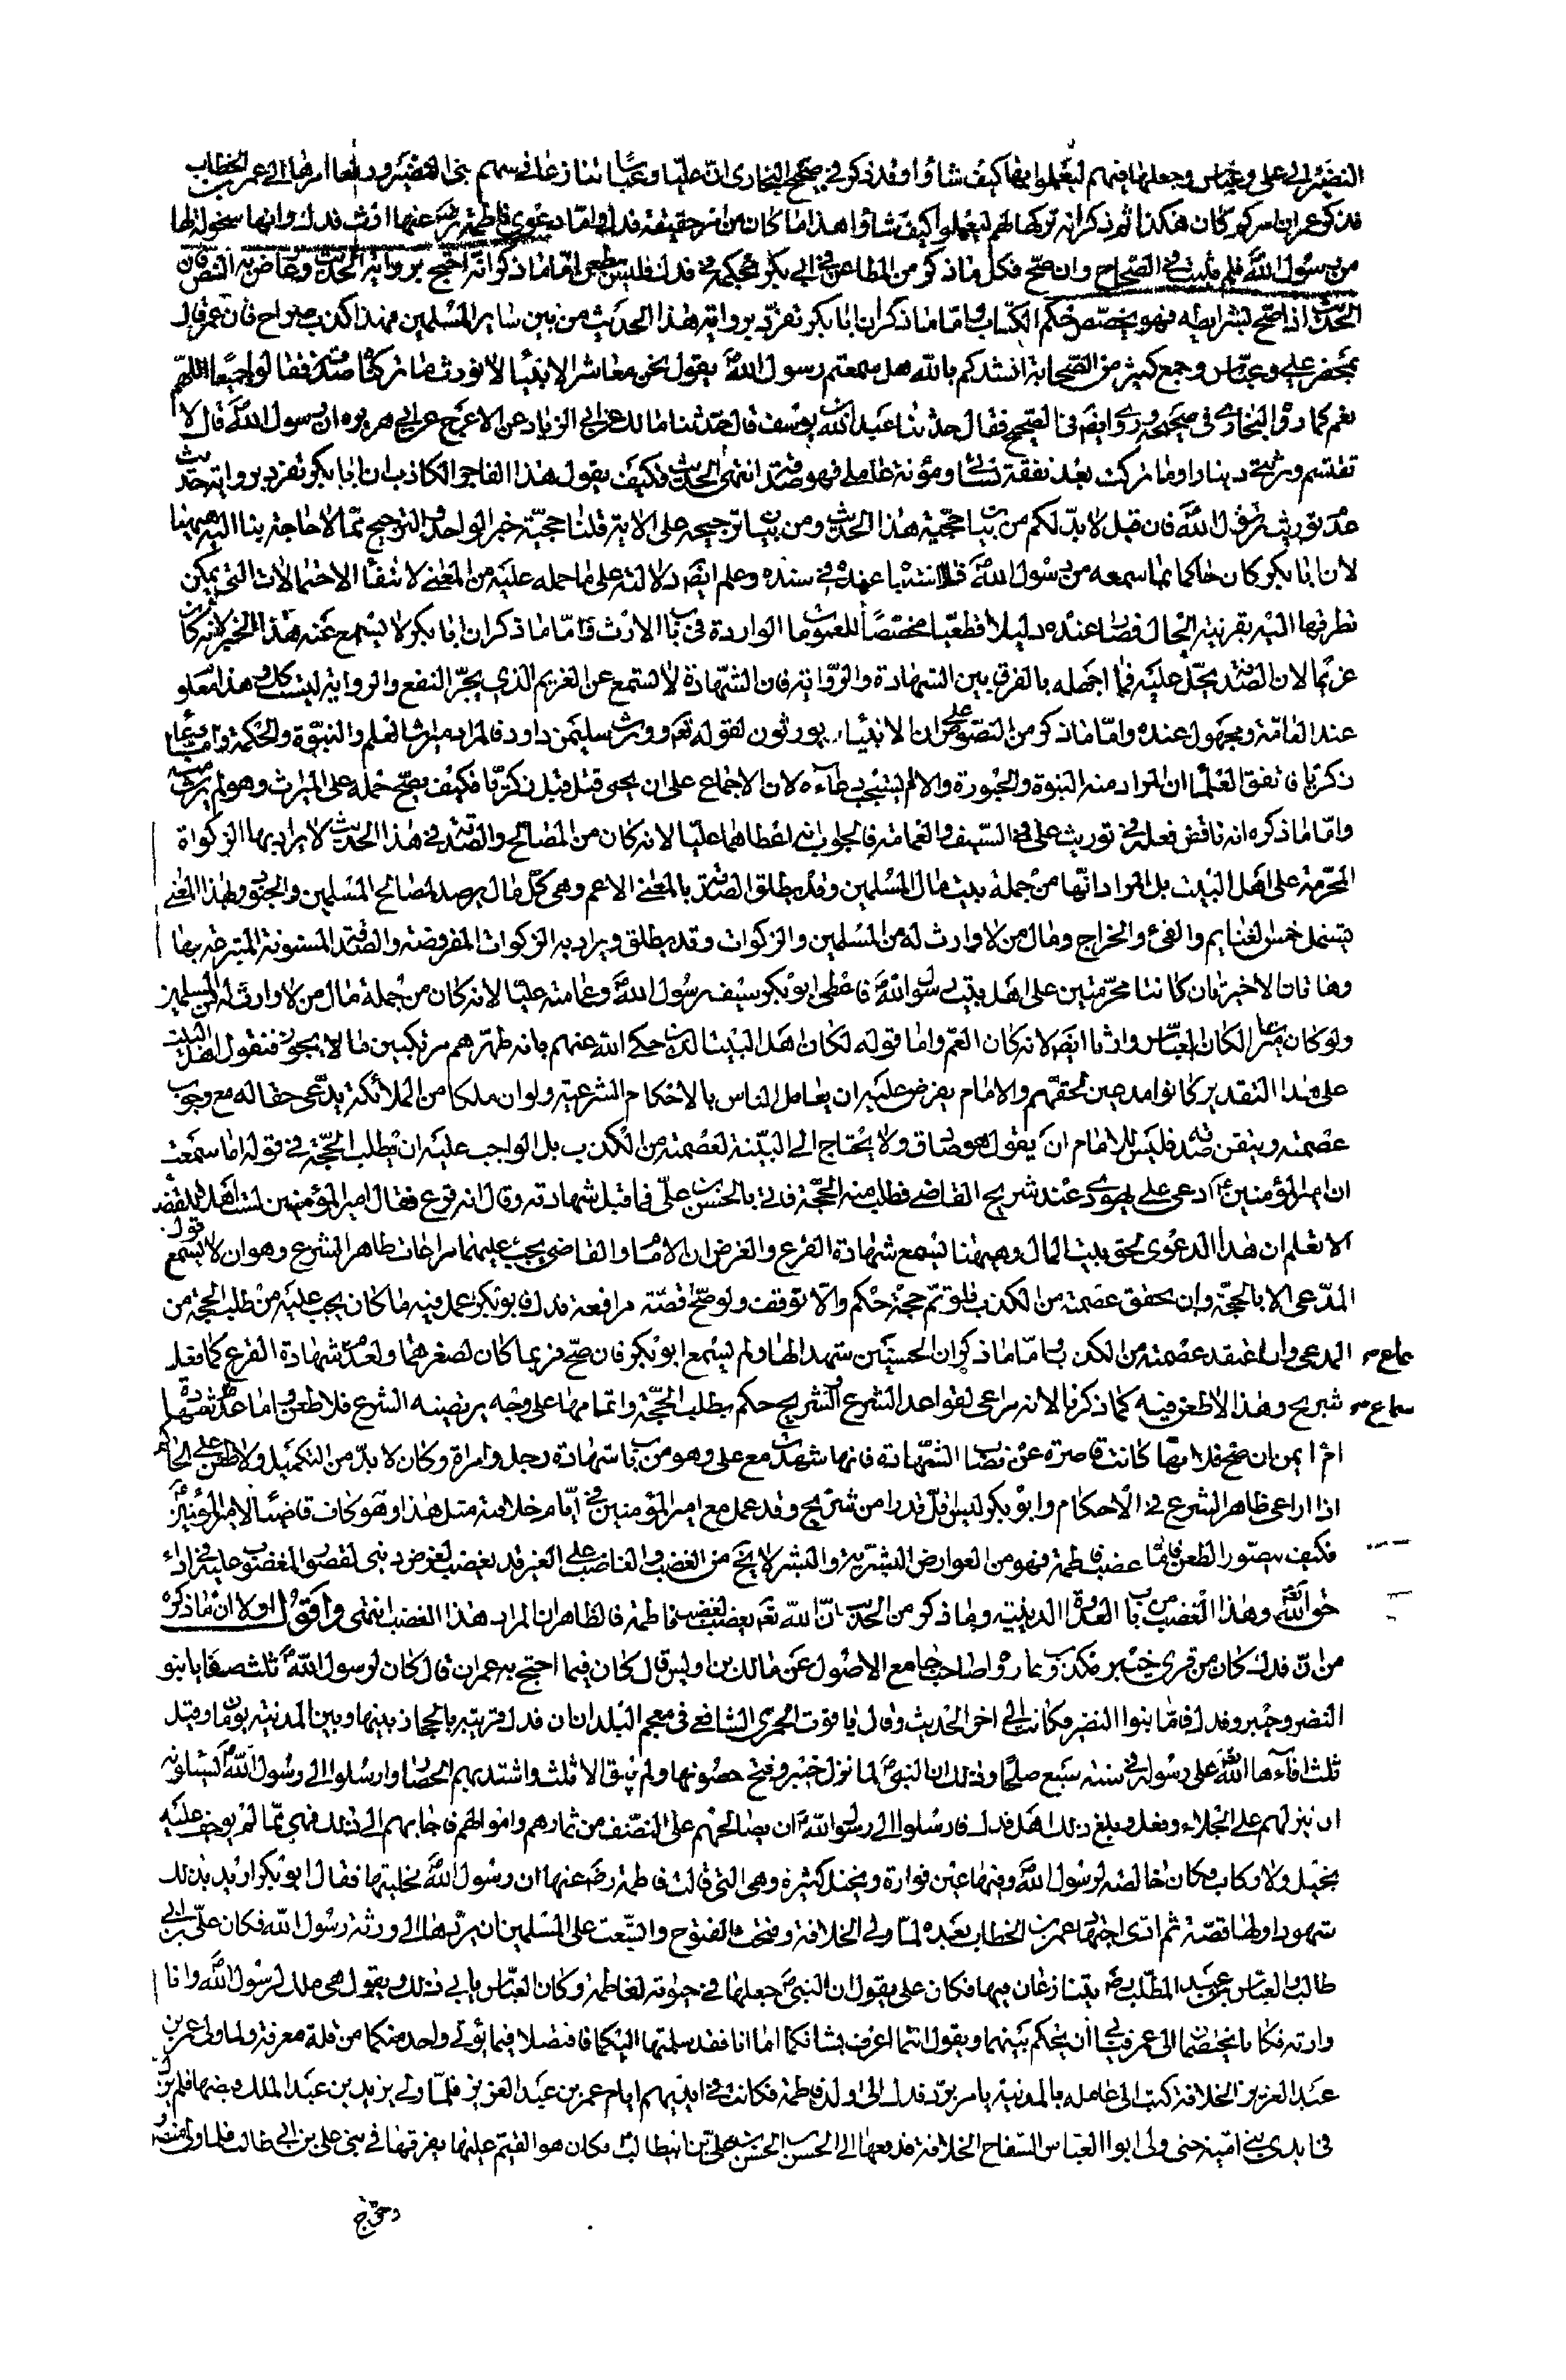 النضير الى علي وعباس وجعلها فيهم ليعملوا بها كيف شاؤا وقد ذكر في صحيح البخارى ان عليا وعباسا تنازعا في سهم بنى النضير ورفعا امرها الى عمر بن الخطاب
فذكر عمر ان امركم كان هكذا ثم ذكر انه تركها لهم ليعملوا كيف شاؤا هذا ما كان من امر حقيقة فدك واما دعوى فاطمة رض عنها ارث فدك وانها منحولة لها
من رسول الله فلم يثبت في الصحاح وان صح فكل ما ذكر من المطاعن في ابي بكر بحكمه في فدك فليس بطعن اما ما ذكر انه احتج برواية الحديث وعارض به النص فان
الحديث اذا صح بشرايطه فهو يخصص حكم الكتاب واما ما ذكر ان ابا بكر تفرد برواية هذا الحديث من بين ساير المسلمين فهذا كذب صراح فان عمر قال
بمحضر علي وعباس وجمع كثير من الصحابة انشدكم بالله هل سمعتم رسول الله يقول نحن معاشر الانبيا لا نورث ما تركناه صدقة فقالوا جميعا اللهم
نعم كما رواه البخاري في صحيحه وروى ايضا في الصحيح فقال حدثنا عبد الله بن يوسف قال حدثنا مالك عن ابي الزياد عن الاعرج عن ابي هريره ان رسول الله قال لا
تقتسم ورثتي دينارا وما تركت بعد نفقة نسائي ومؤنة عاملي فهو صدقة انتهى الحديث فكيف يقول هذا الفاجر الكاذب ان ابا بكر تفرد برواية حديث
عدم توريث رسول الله فان قيل لا بد لكم من بيان حجية هذا الحديث ومن بيان ترجيحه على الاية قلنا حجية خبر الواحد والترجيح مما لا حاجة بنا اليه ههنا
لان ابا بكر كان حاكما بما سمعه من رسول الله فلا اشتباه عنده في سنده وعلم ايضا دلالته على ما حمله عليه من المعنى لانتفاء الاحتمالات التى يمكن
تطرقها اليه بقرينة الحال فصار عنده دليلا قطعيا مخصصا للعمومات الواردة في باب الارث فاما ما ذكر ان ابا بكر لا يسمع عنه هذا الخبر لانه كان
غريما لان الصدقة يحل عليه فما اجهله بالفرق بين الشهادة والرواية فان الشهادة لا تسمع عن الغريم الذي يجر النفع والرواية ليست كذلك وهذا معلوم
عند العامة ومجهول عنده واما ما ذكر من النصوص على ان الانبياء يورثون لقوله تع وورث سليمن داود فالمراد ميراث العلم والنبوة والحكمة واما دعاء
زكريا فاتفق العلما ان المراد منه النبوة والحبورة والا لم يستجب دعاءه لان الاجماع على ان يحيى قتل قبل زكريا فكيف يصح حمله على الميراث وهو لم يرث منه
واما ما ذكره انه ناقض فعله في توريث علي في السيف والعمامة فالجواب انه اعطاهما عليا لانه كان من المصالح والصدقة في هذا الحديث لا يراد بها الزكواة
المحرمة على اهل البيت بل المراد انها من جملة بيت مال المسلمين وقد يطلق الصدقة بالمعنى الاعم وهى كل مال يرصد لمصالح المسلمين والجنود وبهذا المعنى
يشمل خمس الغنايم والفئ والخراج ومال من لا وارث له من المسلمين والزكوات وقد يطلق ويراد به الزكوات المفروضة والصدقة المسنونة المتبرعة بها
وهاتان الاخيرتان كانتا محرمتين على اهل بيت رسول الله فاعطى ابو بكر سيف رسول الله وعمامته عليا لانه كان من جملة مال من لا وارث له من المسلمين
ولو كان ميراثا لكان العباس وارثا ايضا لانه كان العم واما قوله لكان اهل البيت الذين حكى الله عنهم بانه طهرهم مرتكبين ما لا يجوز فنقول اهل البيت
على هذا التقدير كانوا مدعين لحقهم والامام يفرض عليه ان يعامل الناس بالاحكام الشرعية ولو ان ملكا من الملائكة يدعى حقا له مع وجوب
عصمته ويتقن صدقه فليس للامام ان يقول هو صادق ولا يحتاج الى البينة لعصمته من الكذب بل الواجب عليه ان يطلب الحجة في قوله اما سمعت
ان امير المؤمنين ع ادعى على يهودى عند شريح القاضي فطلب منه الحجة فاتى بالحسن بن علي فما قبل شهادته وقال انه فرع فقال امير المؤمنين لست اهلا للقضاء
الا تعلم ان هذا الدعوى لحق بيت المال وههنا يسمع شهادة الفرع والغرض ان الامام والقاضي يجب عليهما مراعات ظاهر الشرع وهو ان لا يسمع قول
المدعى الا بالحجة وان تحقق عصمته من الكذب فلو تم حجة حكم والا توقف ولو صح قصة مرافعة فدك فابو بكر عمل فيه ما كان يجب عليه من طلب الحجة من
المدعى وان اعتقد عصمته من الكذب واما ما ذكر ان الحسنين شهدا لها ولم يسمع ابو بكر فان صح فربما كان لصغرهما ولعدم شهادة الفرع كما فعل
شريح وهذا لا طعن فيه كما ذكرنا لانه مراعى لقواعد الشرع والشريح حكم بطلب الحجة واتمامها على وجه يرتضيه الشرع فلا طعن واما عدم شهادة
ام ايمن ان صح فلانها كانت قاصرة عن نصاب الشهادة فانها شهدت مع علي وهو من باب شهادة رجل وامراة وكان لا بد من التكميل ولا طعن على الحاكم
اذا راعى ظاهر الشرع في الاحكام وابو بكر ليس اقل قدرا من شريح وقد عمل مع امير المؤمنين في ايام خلافته مثل هذا وهو كان قاضيا لامير المؤمنين
فكيف يتصور الطعن واما غضب فاطمة فهو من العوارض البشرية والبشر لا يخ من الغضب والغاضب على الغير قد يغضب لغرض دينى لقصور المغضوب عليه في اداء
حق الله تع وهذا الغضب من باب العداوة الدينية وما ذكر من الحديث ان الله تع يغضب لغضب فاطمة فالظاهر ان المراد هذا الغضب انتهى واقول اولا ان ما ذكره
من ان فدك كان من قرى خيبر مكذوب بما رواه صاحب جامع الاصول عن مالك بن اوس قال كان فيما احتج به عمر ان قال كان لرسول الله ثلث صفايا بنو
النضير وخيبر وفدك فاما بنو النضير فكانت الى اخر الحديث وقال ياقوت الحموى الشافعي في معجم البلدان ان فدك قرية بالحجاز بينها وبين المدينة يومان وقيل
ثلث افاءها الله على رسوله في سنة سبع صلحا وذلك ان النبي ص لما نزل خيبر وفتح حصونها ولم يبق الا ثلث واشتد بهم الحصار ارسلوا الى رسول الله يسئلونه
ان ينزلهم على الجلاء وفعل وبلغ ذلك اهل فدك فارسلوا الى رسول الله ان يصالحهم على النصف من ثمارهم واموالهم فاجابهم الى ذلك فهى مما لم يوجف عليه
بخيل ولا ركاب وكان خالصة لرسول الله وفيها عين فوارة ونخيل كثيرة وهى التى قالت فاطمة رض عنها ان رسول الله نحلنيها فقال ابو بكر اريد بذلك
شهودا ولها قصة ثم ادى اجتهاد عمر بن الخطاب بعده لما ولى الخلافة وفتحت الفتوح واتسعت على المسلمين ان يردها الى ورثة رسول الله فكان علي بن ابي
طالب والعباس بن عبد المطلب رض يتنازعان فيها فكان على يقول ان النبي ص جعلها في حيوته لفاطمة وكان العباس يابى ذلك ويقول هى ملك لرسول الله وانا
وارثه فكانا يختصمان الى عمر فيابى ان يحكم بينهما ويقول انتما اعرف بشانكما اما انا فقد سلمتها اليكما فاقتصلا فيما يؤتى واحد منكما من قلة معرفة ولما ولى عمر بن
عبد العزيز الخلافة كتب الى عامله بالمدينة يامر برد فدك الى ولد فاطمة فكانت في ايديهم ايام عمر بن عبد العزيز فلما ولى يزيد بن عبد الملك قبضها فلم يزل
في ايدى بني امية حتى ولى ابو العباس السفاح الخلافة فدفعها الى الحسن بن الحسن بن علي بن ابيطالب فكان هو القيم عليها يفرقها في بنى على بن ابي طالب فلما ولى منصور